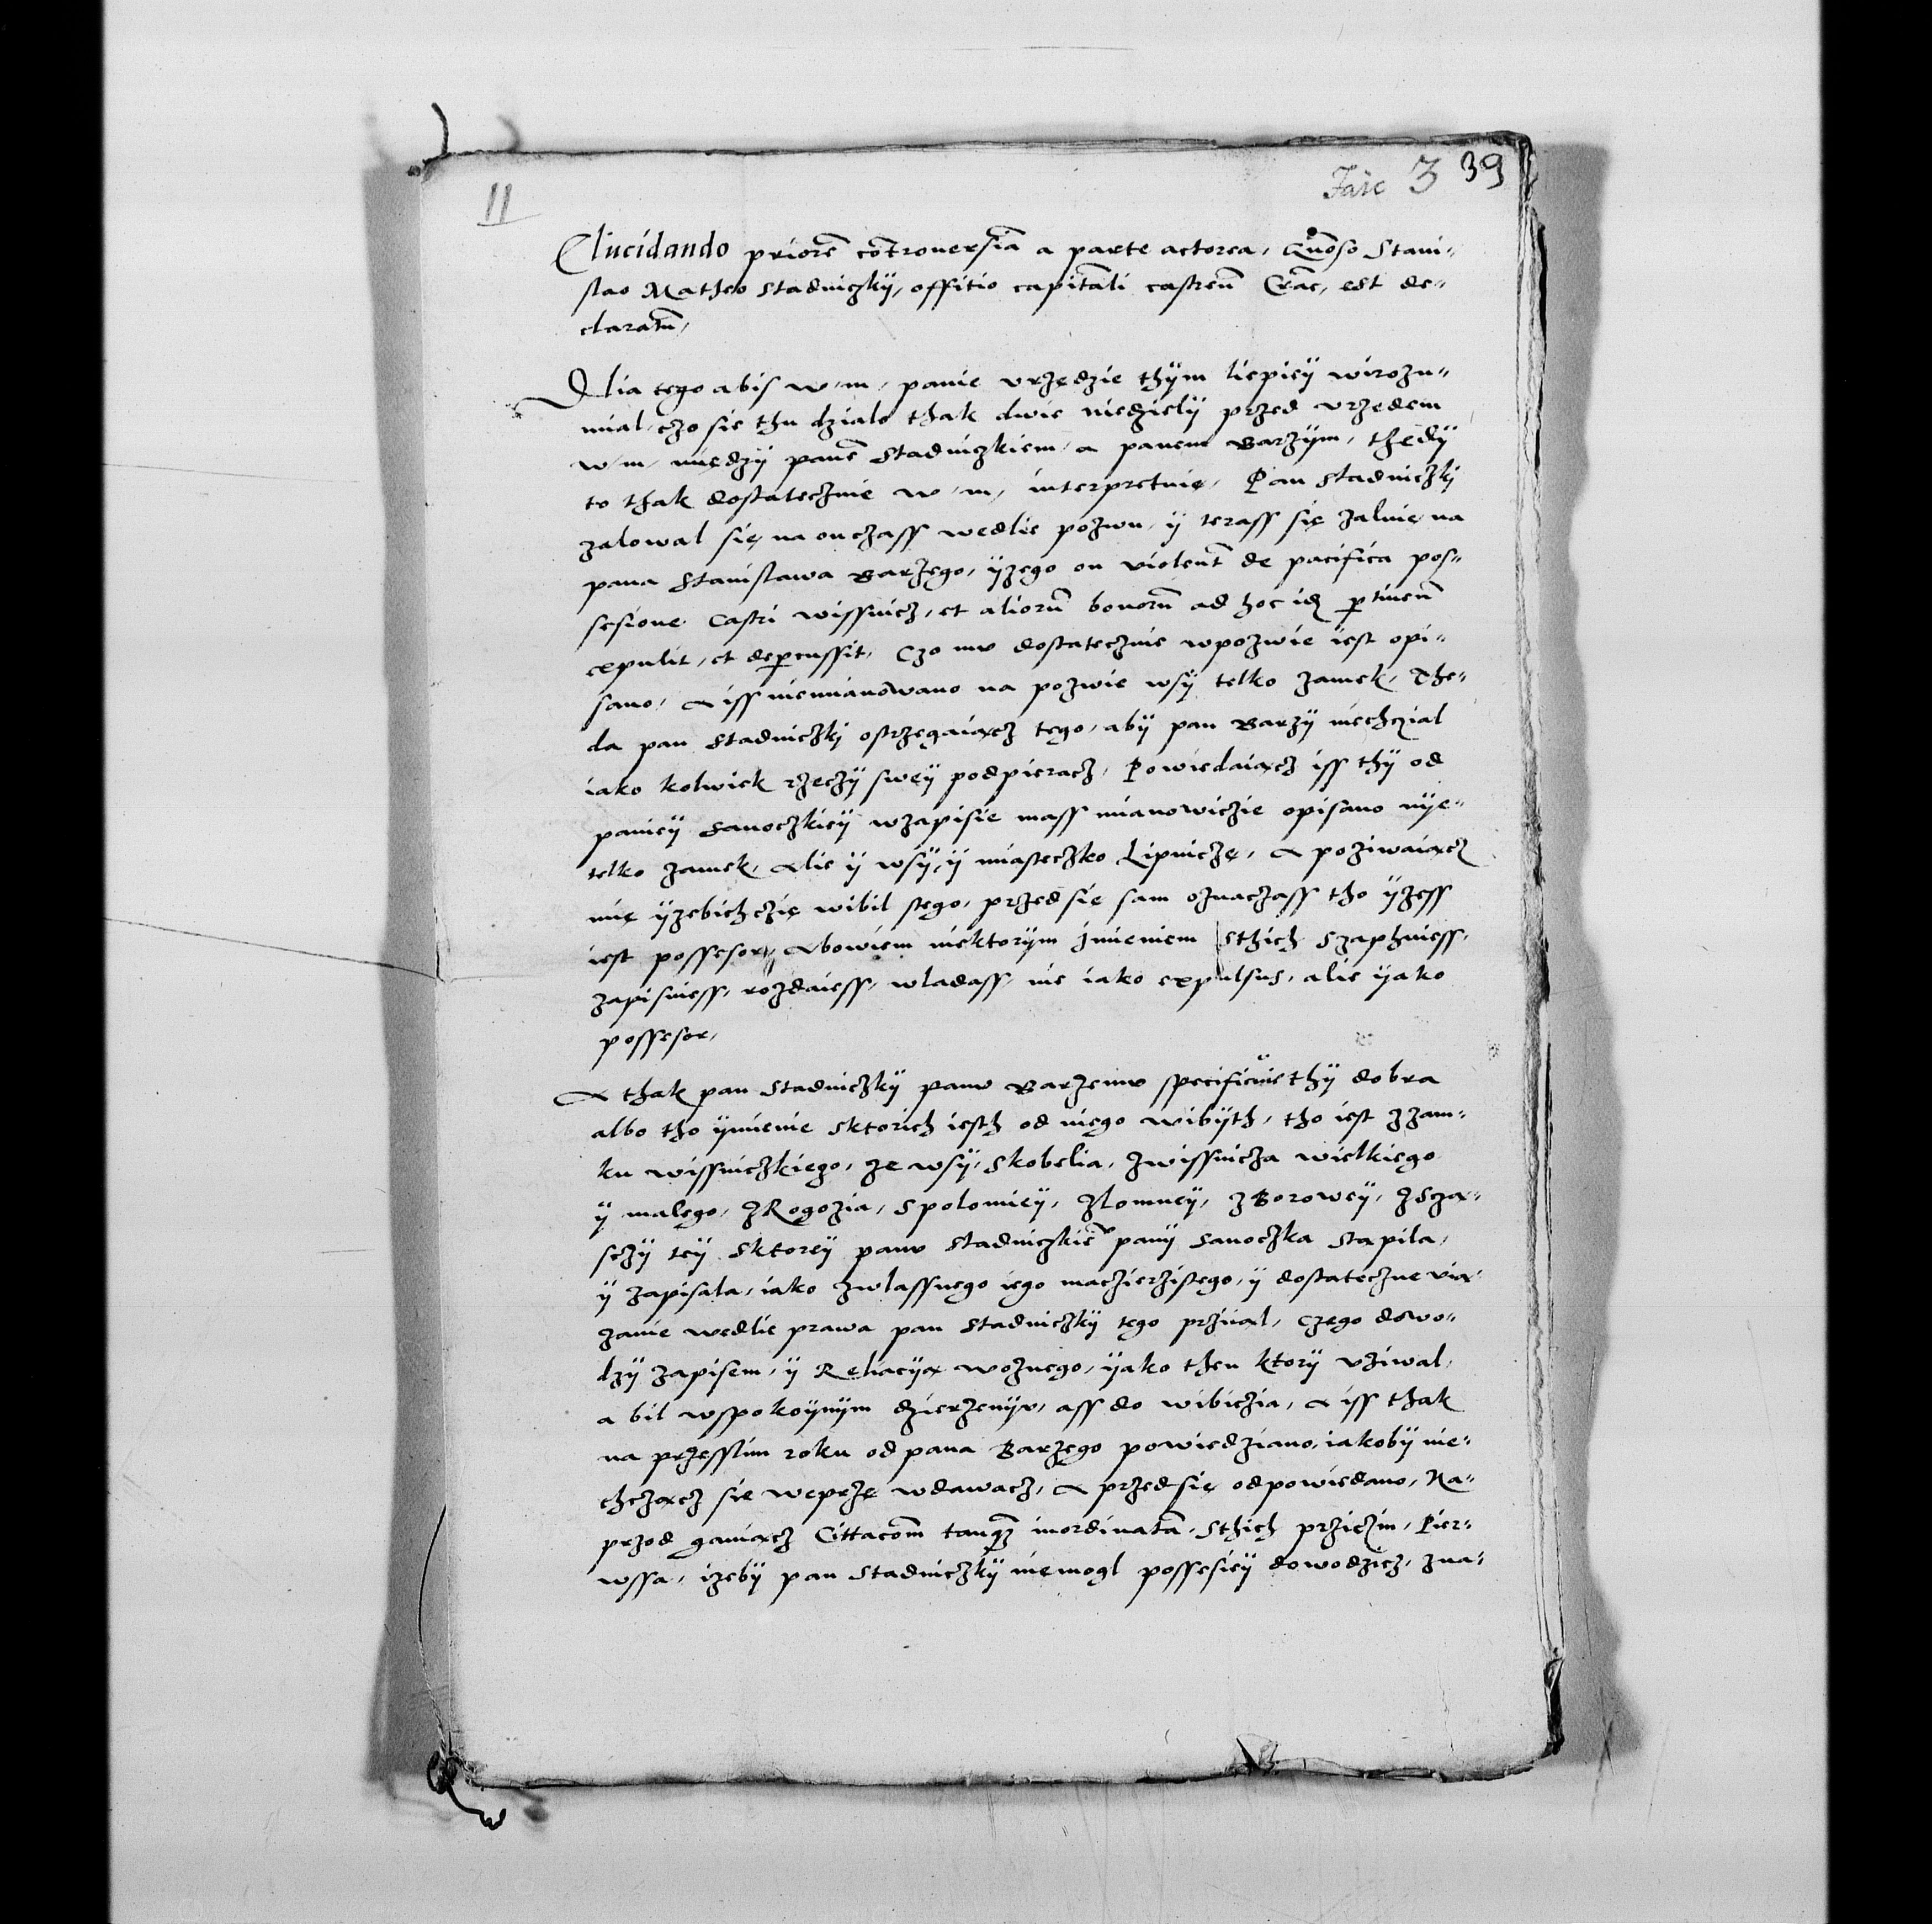 11
Fasc 3 39
Elucidando priorē cōtrouersiā a parte actorea, Gnōso Stani-
slao Matheo Stadniczkÿ, offitio capitāli castreñ Crāc, est de-
claratū,
Dlia tego abis w, m, panie vrzędzie thÿm liepieÿ wirozu-
mial, czo sie thu dzialo thak dwie niedzielÿ przed vrzędem
w, m, miedzÿ panē Stadniczkiem, a panem Barzÿm, thedÿ
to thak dostatecznie w, m, interpretuię, Pan Stadniczkj
zalowal się na on czass wedlie pozwu, ÿ terass się zaluię na
pana Stanislawa Barzego, ÿzego on violent̄ de pacifica pos-
sesione Castri wissnicz, et aliorū bonorū ad hoc idz pertineñ
expulit, et depercussit, Czo mv dostatecznie wpozwie iest opi-
sano, A iss niemianowano na pozwie wsÿ telko zamek, The-
da pan Stadniczkj ostrzegaiącz tego, abÿ pan Barzÿ niechczial
iako kolwiek rzeczÿ sweÿ podpieracz, Powiedaiącz iss thÿ od
panieÿ Sanoczkieÿ wzapisie mass mianowiczie opisano nÿe-
telko zamek, Alie ÿ wsÿ, ÿ miasteczko Lipniczę, A poziwaiącz
mię ÿzebich czię wibil stego, przed się sam oznaczass tho ÿzess
iest possesorẽ, Abowiem niektorÿm jmieniem sthich szaphuiess,
zapisuiess, rozdaiess, wladass, nie iako expulsus, alie ÿako
possesor,
A thak pan Stadniczkÿ panv Barzemv specificuie thÿ dobra
albo tho ÿmienie sktorich iesth od niego wibÿth, tho iest zzam-
ku wissniczkiego, ze wsÿ, skobelia, zwissnicza wielkiego
ÿ malego, zRogozia, spolomieÿ, zlomneÿ, zBoroweÿ, zsza-
sczÿ teÿ sktoreÿ panv Stadniczkiēv panÿ Sanoczka stąpila,
ÿ zapisala, iako zwlassnego iego maczierzistego, ÿ dostateczne vią-
zanie wedlie prawa pan Stadniczkÿ tego prziiąl, Czego dowo-
dzÿ zapisem, ÿ Reliacÿą woznego, ÿako then ktorÿ vziwal,
a bil wspokoÿnÿm dzierzenÿv, ass do wibiczia, A iss thak
na przesslim roku od pana Barzego powiedziano, iakobÿ nie-
chcząncz sie weprzę wdawacz, A przedsię odpowiedano, Na-
przod ganiącz Cittacōm tanq̄z inordinatā, Sthich prziczin, Pier-
wssa, izebÿ pan Stadniczkÿ niemogl possesieÿ dowodzicz, zna-